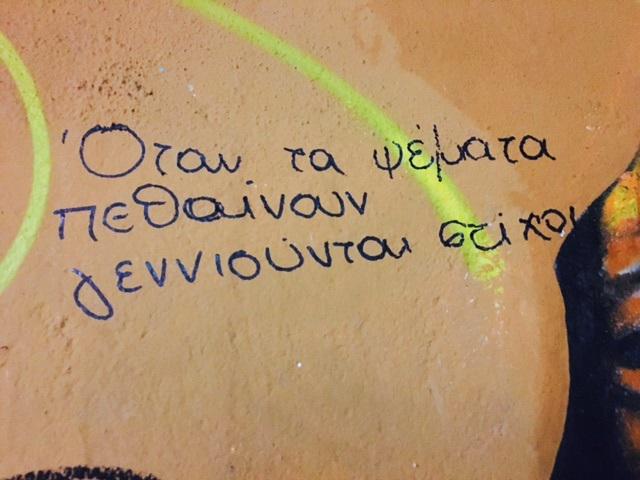 Όταν τα ψέματα
πεθαίνουν
γεννιούνται στίχοι